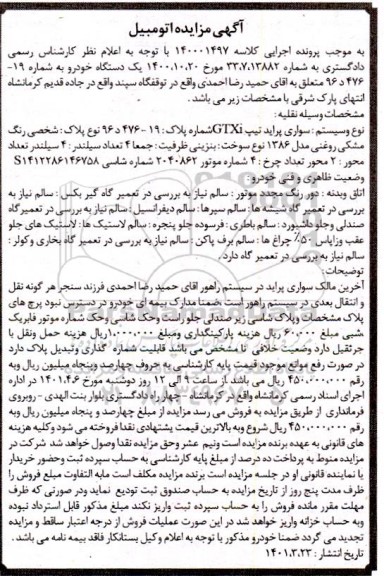 آگهی مزایده اتومبیل
به موجب پرونده اجرایی کلاسه ۱۴۰۰۰۱۴۹۷ با توجه به اعلام نظر کارشناس رسمی
دادگستری به شماره ۳۳،۷،۱۳۸۸۲ مورخ ۱۴۰۰،۱۰،۲۰ یک دستگاه خودرو به شماره ۱۹-
۴۷۶ د ۹۶ متعلق به اقای حمید رضا احمدی واقع در توقفگاه سپند واقع در جاده قدیم کرمانشاه
انتهای پارک شرقی با مشخصات زیر می باشد .
مشخصات وسیله نقلیه :
نوع وسیستم : سواری پراید تیپ GTXi شماره پلاک : ۱۹ -۴۷۶ د ۹۶ نوع پلاک : شخصی رنگ
مشکی روغنی مدل ۱۳۸۶ نوع سوخت : بنزینی ظرفیت : جمعا ۴ تعداد سیلندر : ۴ سیلندر تعداد
محور : ۲ محور تعداد چرخ : ۴ شماره موتور ۲۰۴۰۸۶۲ شماره شاسی S۱۴۱۲۲۸۶۱۴۶۷۵۸
وضعیت ظاهری و فنی خودرو :
اتاق وبدنه : دور رنگ مجدد موتور : سالم نیاز به بررسی در تعمیر گاه گیر بکس : سالم نیاز به
بررسی در تعمیر گاه شیشه ها : سالم سپرها : سالم دیفرانسیل : سالم نیاز به بررسی در تعمیر گاه
صندلی وجلو داشبورد : سالم باطری : فرسوده جلو پنجره : سالم لاستیک ها : لاستیک های جلو
عقب وزاپاس ۵۰٪ چراغ ها : سالم برف پاکن : سالم نیاز به بررسی در تعمیر گاه بخاری و کولر :
سالم نیاز به بررسی در تعمیر گاه دارد.
توضیحات :
آخرین مالک سواری پراید در سیستم راهور اقای حمید رضا احمدی فرزند سنجر هر گونه نقل
و انتقال بعدی در سیستم راهور است .ضمنا مدارک بیمه ای خودرو در دسترس نبود پرچ های
پلاک مشخصات وپلاک شاسی زیر صندلی جلو راست وحک شاسی وحک شماره موتور فابریک
.شبی مبلغ ۶۰،۰۰۰ ریال هزینه پارکینگداری ومبلغ ۱،۰۰۰،۰۰۰ریال هزینه حمل ونقل با
جرثقیل دارد وضعیت خلافی نا مشخص می باشد قابلیت شماره گذاری وتبدیل پلاک دارد
در صورت رفع موانع موجود قیمت پایه کارشناسی به حروف چهارصد وپنجاه میلیون ریال وبه
رقم ۴۵۰،۰۰۰،۰۰۰ ریال می باشد از ساعت ۹ الی ۱۲ روز دوشنبه مورخ ۱۴۰۱،۴،۶ در اداره
اجرای اسناد رسمی کرمانشاه واقع در کرمانشاه - چهار راه دادگستری بلوار بنت الهدی - روبروی
فرمانداری از طریق مزایده به فروش می رسد مزایده از مبلغ چهارصد و پنجاه میلیون ریال وبه
رقم ۴۵۰،۰۰۰،۰۰۰ ریال شروع وبه بالاترین قیمت پیشنهادی نقدا فروخته می شود وکلیه هزینه
های قانونی به عهده برنده مزایده است ونیم عشر وحق مزایده نقدا وصول خواهد شد شرکت در
مزایده منوط به پرداخت ده درصد از مبلغ پایه کارشناسی به حساب سپرده ثبت وحضور خریدار
یا نماینده قانونی او در جلسه مزایده است برنده مزایده مکلف است مابه التفاوت مبلغ فروش را
ظرف مدت پنج روز از تاریخ مزایده به حساب صندوق ثبت تودیع نماید ودر صورتی که ظرف
مهلت مقرر مانده فروش را به حساب سپرده ثبت واریز نکند مبلغ مذکور قابل استرداد نبوده
وبه حساب خزانه واریز خواهد شد در این صورت عملیات فروش از درجه اعتبار ساقط و مزایده
تجدید می گردد ضمنا خودرو مذکور با توجه به اعلام وکیل بستانکار فاقد بیمه نامه می باشد .
تاریخ انتشار : ۱۴۰۱،۳،۲۳